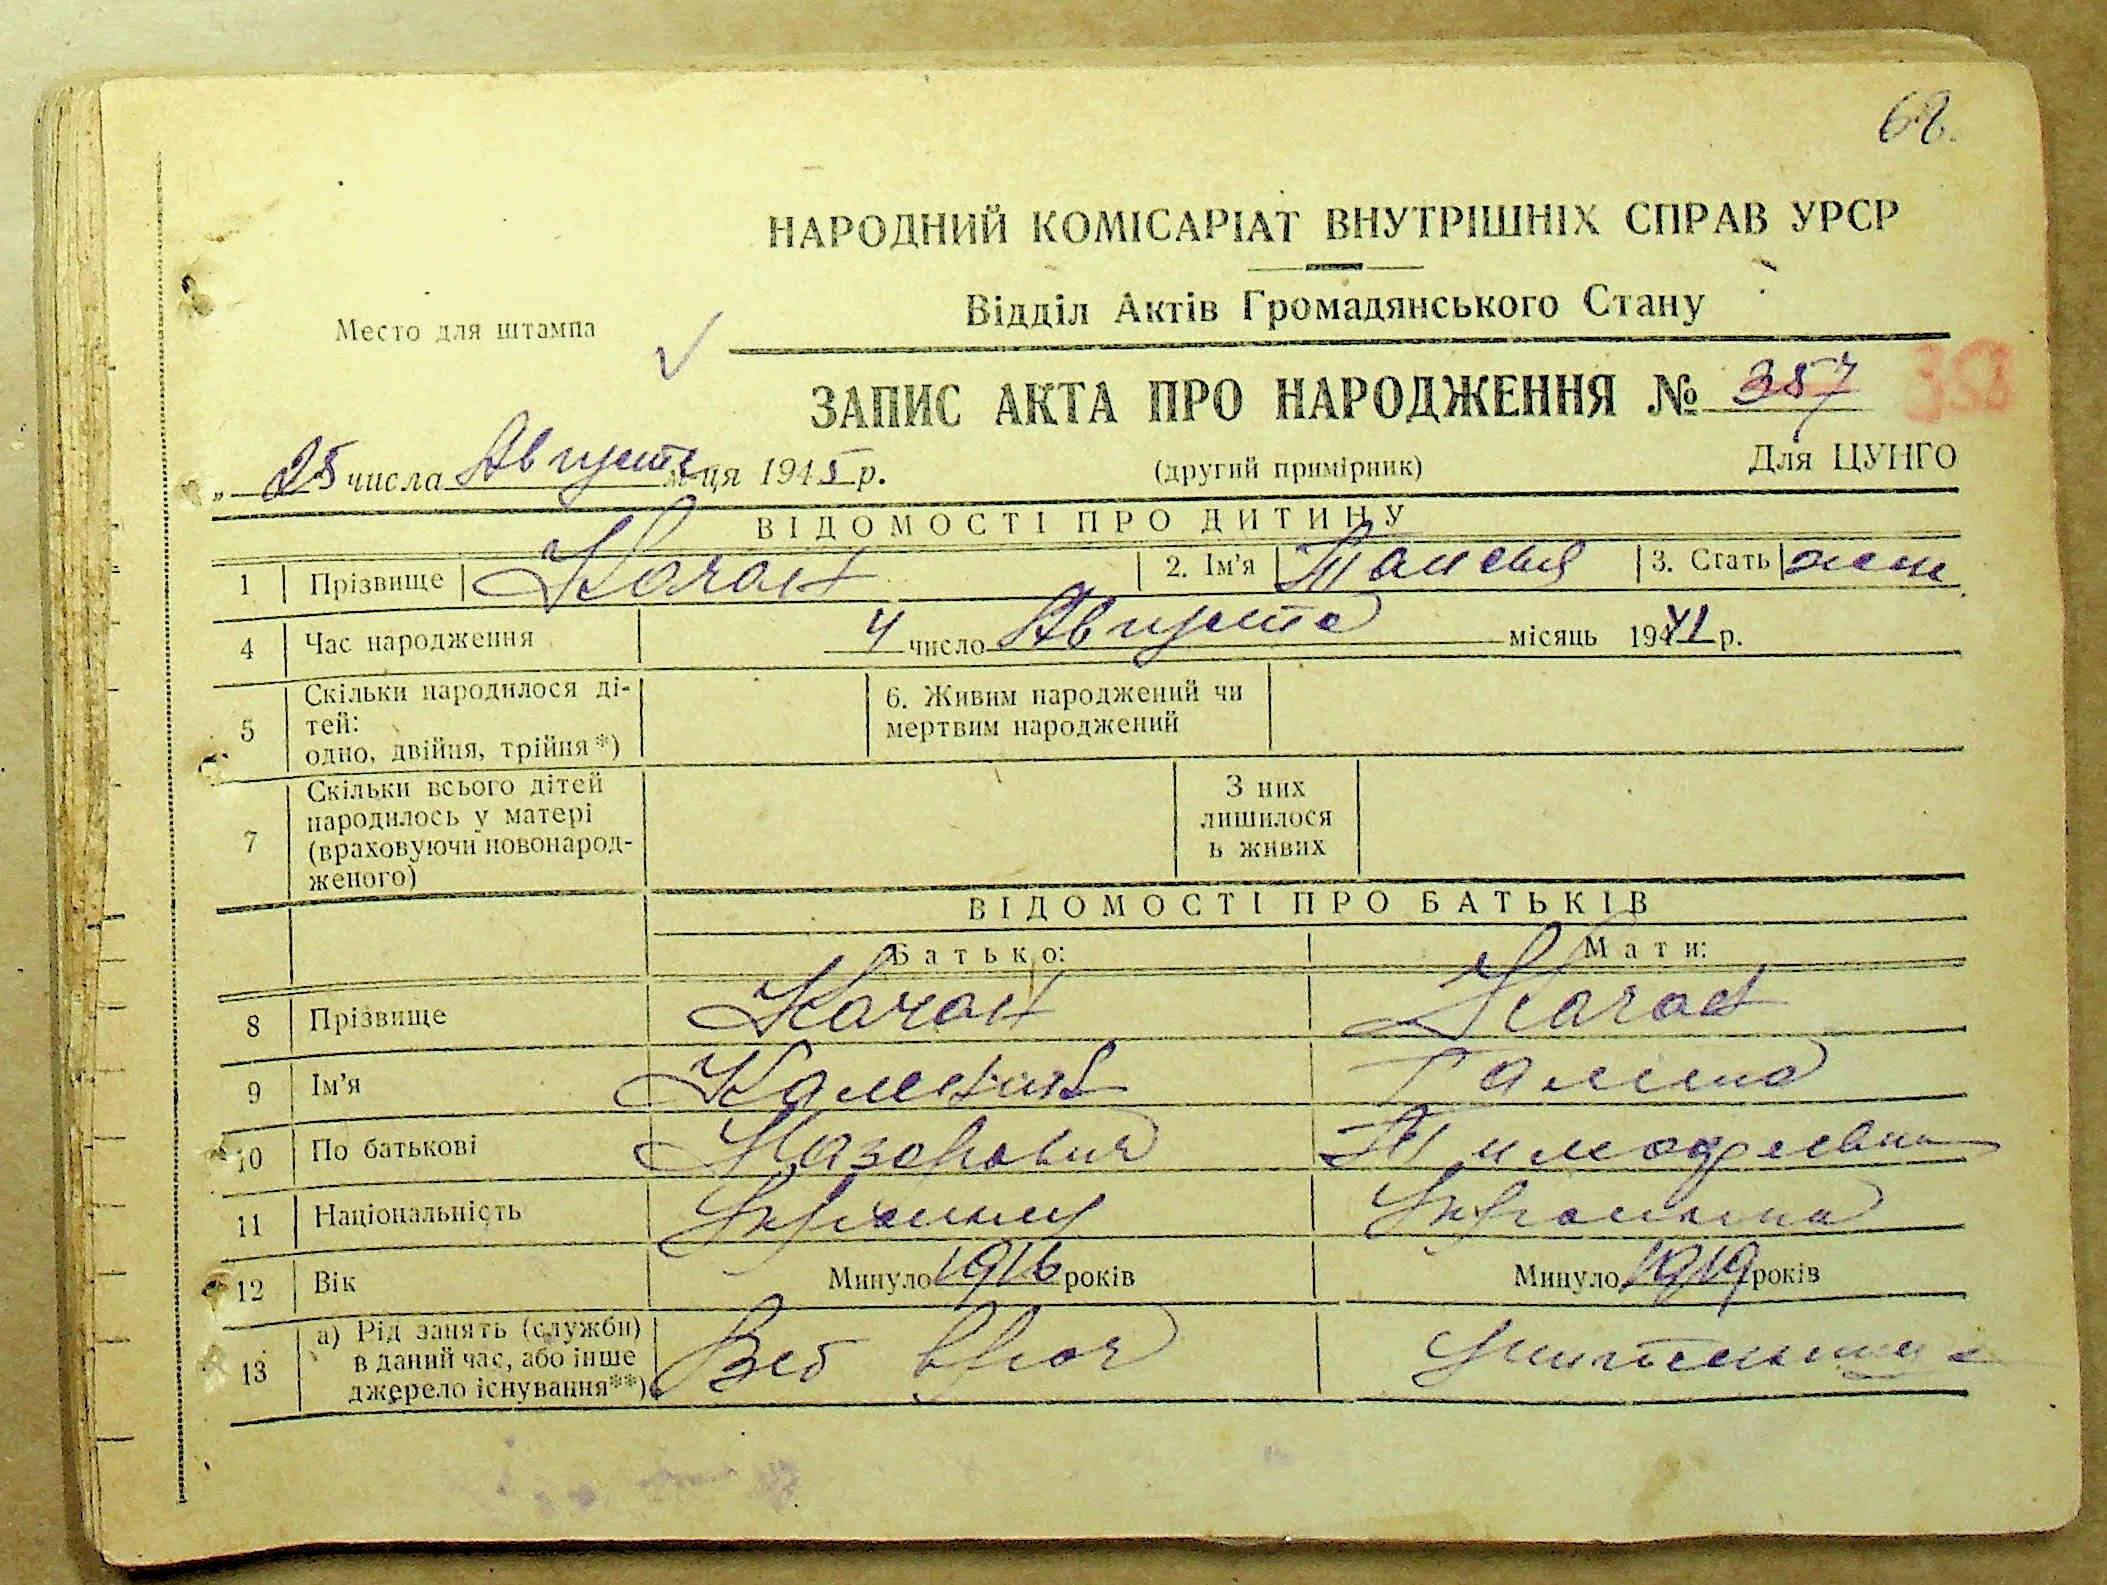 68.
НАРОДНИЙ КОМІСАРІАТ ВНУТРІШНІХ СПРАВ УРСР
Відділ Актів Громадянського Стану
Место для штампа
ЗАПИС АКТА ПРО НАРОДЖЕННЯ № 357 358
„ 25 числа Августа м-ця 1945 р. (другий примірник) Для ЦУНГО
ВІДОМОСТІ ПРО ДИТИНУ
1 Прізвище Качан 2. Ім'я Таисья 3. Стать жен
4 Час народження 4 число Августа місяць 1941 р.
5 Скільки народилося ді-
тей:
одно, двійня, трійня*)
6. Живим народжений чи
мертвим народжений
7 Скільки всього дітей
народилось у матері
(враховуючи новонарод-
женого)
З них
лишилося
в живих
ВІДОМОСТІ ПРО БАТЬКІВ
Батько: Мати:
8 Прізвище Качан Качан
9 Ім'я Галина
10 По батькові Назарович Тимофеевна
11 Національність Українец Украинка
12 Вік Минуло 1916 років Минуло 1919 років
13 а) Рід занять (служби)
в даний час, або інше
джерело існування**)
Вет врач Учительница